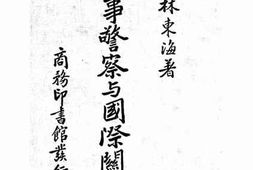 林東海著
事警察与國際關
商務印書館發行